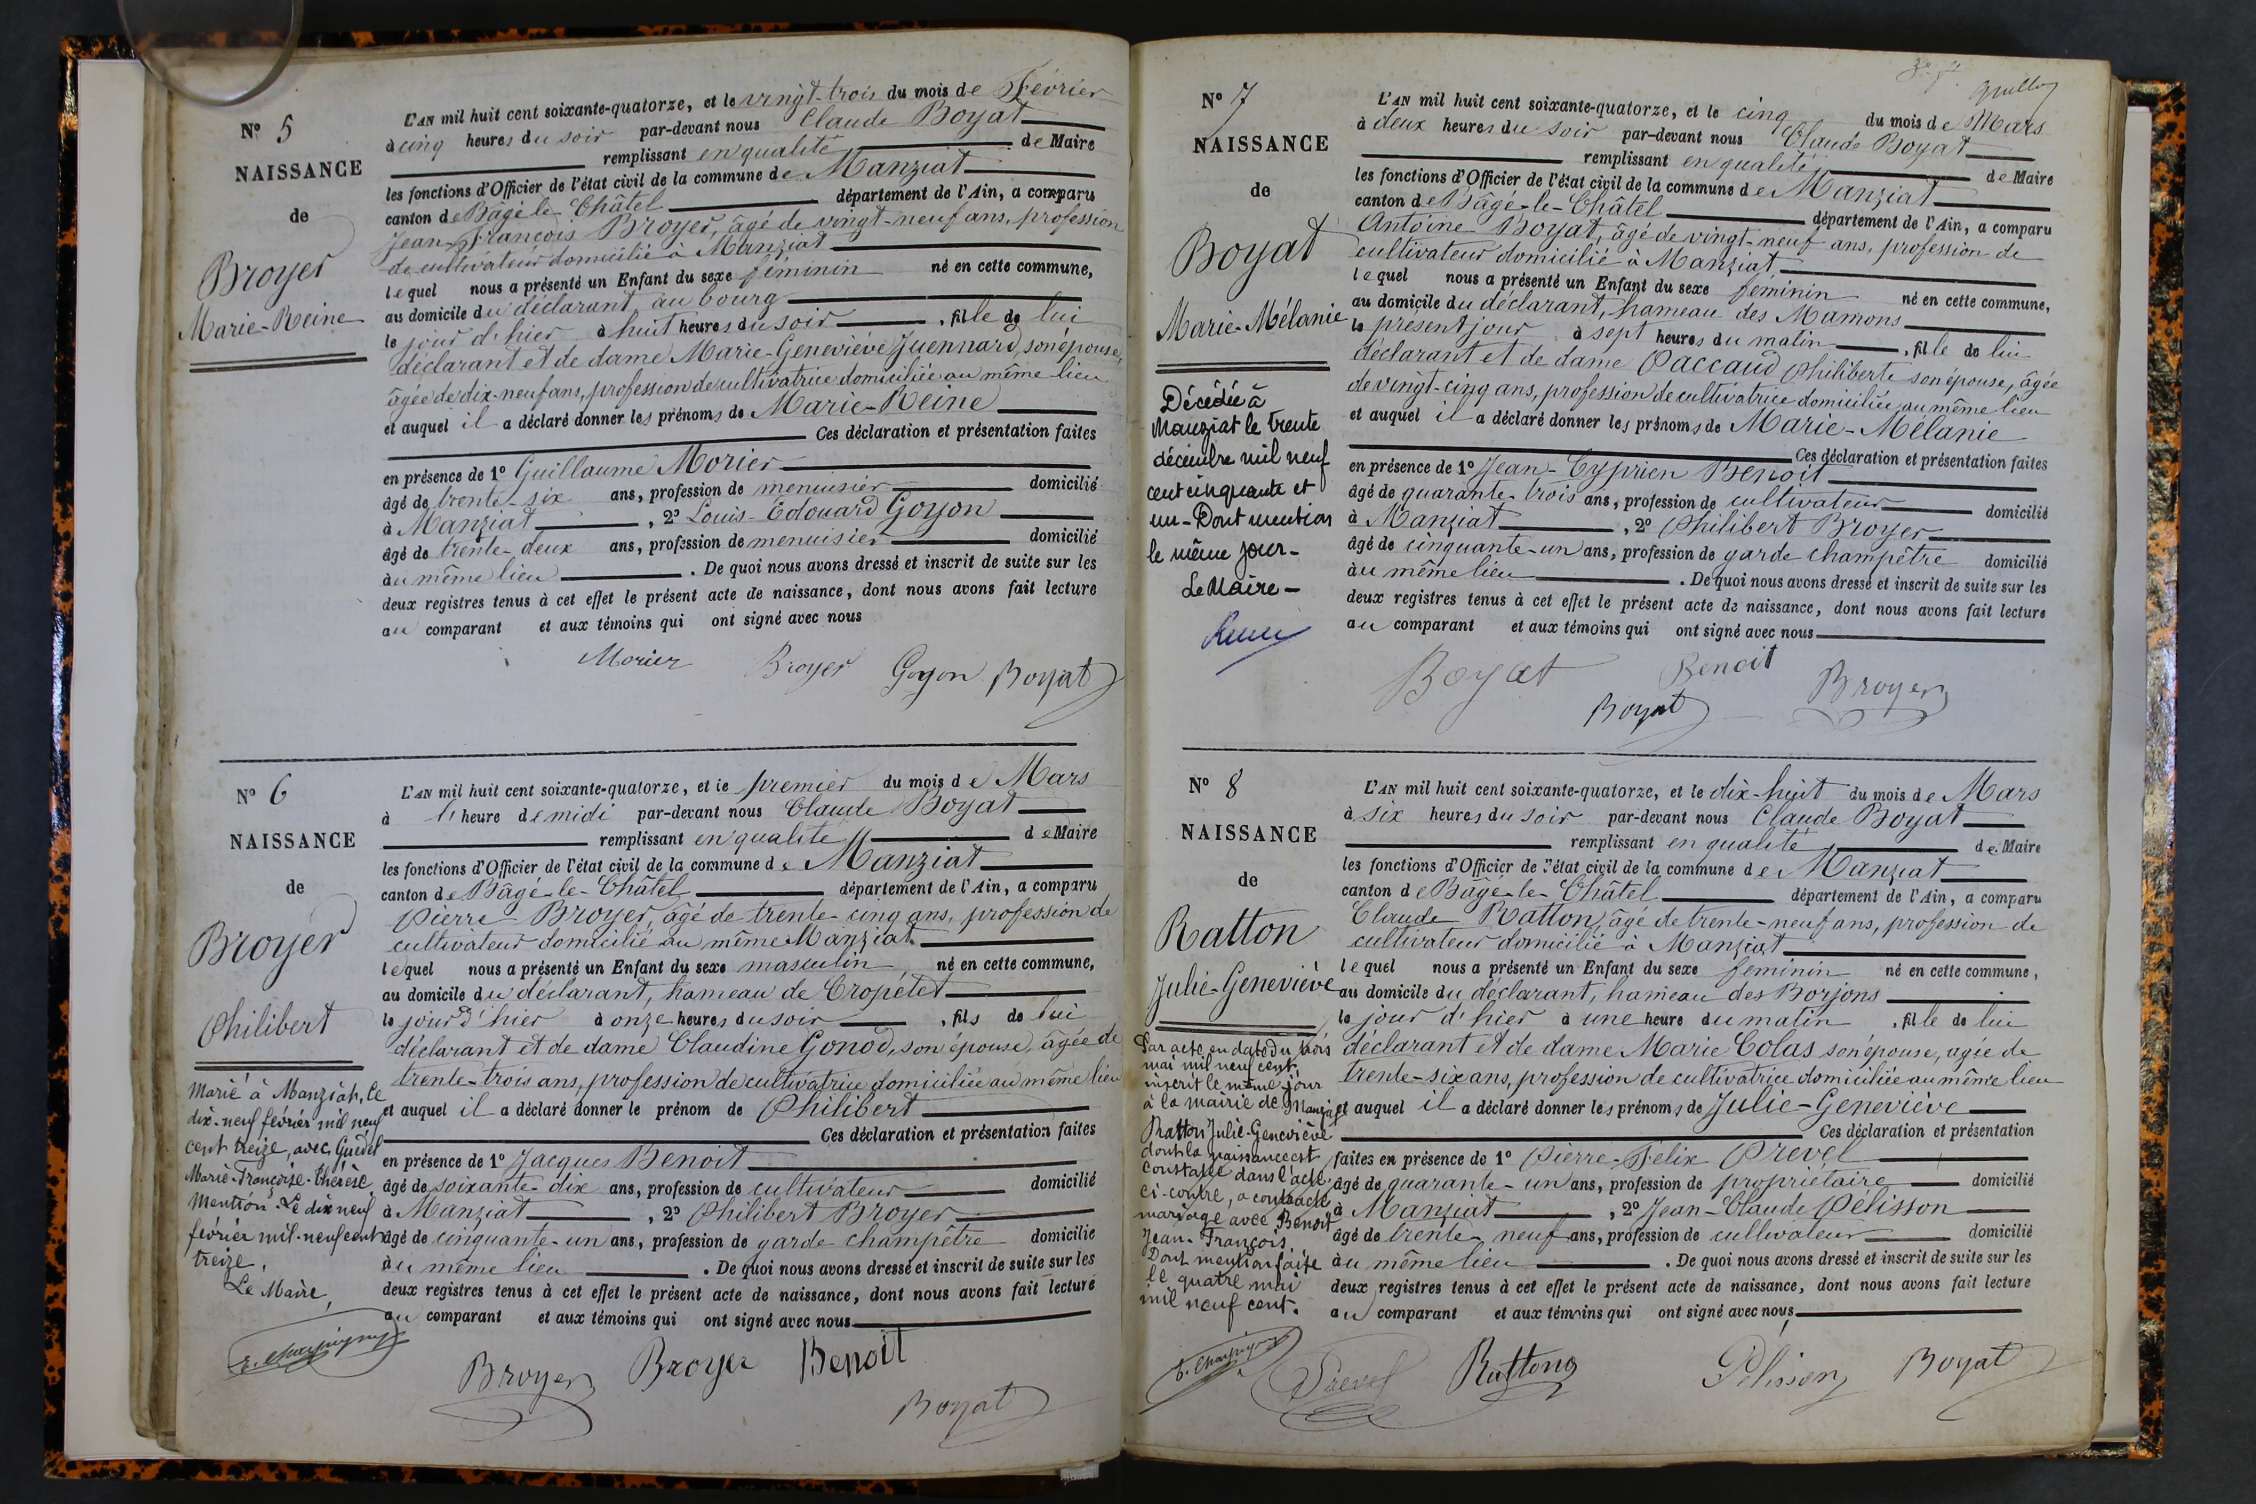 Nº 5
NAISSANCE
de
Broyer
Marie-Reine
L'AN mil huit cent soixante-quatorze, et le vingt-trois du mois de Février
à cinq heures du soir par-devant nous Claude Boyat
remplissant en qualité de Maire
les fonctions d'Officier de l'état civil de la commune de Manziat
canton de Bâgé-le-Châtel département de l'Ain, a comparu
Jean-François Broyer, âgé de vingt-neuf ans, profession
de cultivateur domicilié à Manziat
lequel nous a présenté un Enfant du sexe féminin né en cette commune,
au domicile du déclarant au bourg
le jour d'hier à huit heures du soir , fille de lui
déclarant et de dame Marie-Geneviève Juennard, son épouse,
âgée de dix-neuf ans, profession de cultivatrice domiciliée au même lieu
et auquel il a déclaré donner les prénoms de Marie-Reine
Ces déclaration et présentation faites
en présence de 1º Guillaume Morier
âgé de trente-six ans, profession de menuisier domicilié
à Manziat , 2º Louis-Edouard Goyon
âgé de trente-deux ans, profession de menuisier domicilié
au même lieu . De quoi nous avons dressé et inscrit de suite sur les
deux registres tenus à cet effet le présent acte de naissance, dont nous avons fait lecture
au comparant et aux témoins qui ont signé avec nous
Morier Broyer Goyon Boyat
Nº 6
NAISSANCE
de
Broyer
Philibert
Marié à Manziat, le
dix-neuf février mil neuf
cent treize, avec Guidel
Marie-Françoise-Thérèse
Mention. Le dix neuf
février mil-neuf cent
treize.
Le Maire,
L'AN mil huit cent soixante-quatorze, et le premier du mois de Mars
à l'heure de midi par-devant nous Claude Boyat
remplissant en qualité de Maire
les fonctions d'Officier de l'état civil de la commune de Manziat
canton de Bâgé-le-Châtel département de l'Ain, a comparu
Pierre Broyer, âgé de trente-cinq ans, profession de
cultivateur domicilié au même Manziat
lequel nous a présenté un Enfant du sexe masculin né en cette commune,
au domicile du déclarant, hameau de Cropétet
le jour d'hier à onze heures du soir , fils de lui
déclarant et de dame Claudine Gonod, son épouse, âgée de
trente-trois ans, profession de cultivatrice domiciliée au même lieu
et auquel il a déclaré donner le prénom de Philibert
Ces déclaration et présentation faites
en présence de 1º Jacques Benoit
âgé de soixante-dix ans, profession de cultivateur domicilié
à Manziat , 2º Philibert Broyer
âgé de cinquante-un ans, profession de garde champêtre domicilié
au même lieu . De quoi nous avons dressé et inscrit de suite sur les
deux registres tenus à cet effet le présent acte de naissance, dont nous avons fait lecture
au comparant et aux témoins qui ont signé avec nous
Broyer Broyer Benoit
Boyat
Nº 7
NAISSANCE
de
Boyat
Marie-Mélanie
Décédée à
Manziat le trente
décembre mil neuf
cent cinquante et
un - Dont mention
le même jour -
Le Maire -
L'AN mil huit cent soixante-quatorze, et le cinq du mois de Mars
à deux heures du soir par-devant nous Claude Boyat
remplissant en qualité de Maire
les fonctions d'Officier de l'état civil de la commune de Manziat
canton de Bâgé-le-Châtel département de l'Ain, a comparu
Antoine Boyat, âgé de vingt-neuf ans, profession de
cultivateur domicilié à Manziat
lequel nous a présenté un Enfant du sexe féminin né en cette commune,
au domicile du déclarant, hameau des Mamons
le présent jour à sept heures du matin , fille de lui
déclarant et de dame Paccaud Philiberte son épouse, âgée
de vingt-cinq ans, profession de cultivatrice domiciliée au même lieu
et auquel il a déclaré donner les prénoms de Marie-Mélanie
Ces déclaration et présentation faites
en présence de 1º Jean-Cyprien Benoit
âgé de quarante-trois ans, profession de cultivateur domicilié
à Manziat , 2º Philibert Broyer
âgé de cinquante-un ans, profession de garde champêtre domicilié
au même lieu . De quoi nous avons dressé et inscrit de suite sur les
deux registres tenus à cet effet le présent acte de naissance, dont nous avons fait lecture
au comparant et aux témoins qui ont signé avec nous
Boyat Benoit Broyer
Boyat
Nº 8
NAISSANCE
de
Ratton
Julie-Geneviève
Par acte en date du trois
mai mil neuf cent,
inscrit le même jour
à la mairie de Manziat
Ratton Julie-Geneviève
dont la naissance est
constatée dans l'acte
ci-contre, a contracté
mariage avec Benoit
Jean-François.
Dont mention faite
le quatre mai
mil neuf cent.
L'AN mil huit cent soixante-quatorze, et le dix-huit du mois de Mars
à six heures du soir par-devant nous Claude Boyat
remplissant en qualité de Maire
les fonctions d'Officier de l'état civil de la commune de Manziat
canton de Bâgé-le-Châtel département de l'Ain, a comparu
Claude Ratton, âgé de trente-neuf ans, profession de
cultivateur domicilié à Manziat
lequel nous a présenté un Enfant du sexe féminin né en cette commune,
au domicile du déclarant, hameau des Borjons
le jour d'hier à une heure du matin , fille de lui
déclarant et de dame Marie Colas son épouse, âgée de
trente-six ans, profession de cultivatrice domiciliée au même lieu
et auquel il a déclaré donner les prénoms de Julie-Geneviève
Ces déclaration et présentation
faites en présence de 1º Pierre-Félix Prevel
âgé de quarante-un ans, profession de propriétaire domicilié
à Manziat , 2º Jean-Claude Pélisson
âgé de trente-neuf ans, profession de cultivateur domicilié
au même lieu . De quoi nous avons dressé et inscrit de suite sur les
deux registres tenus à cet effet le présent acte de naissance, dont nous avons fait lecture
au comparant et aux témoins qui ont signé avec nous,
Prevel Ratton Pélisson Boyat